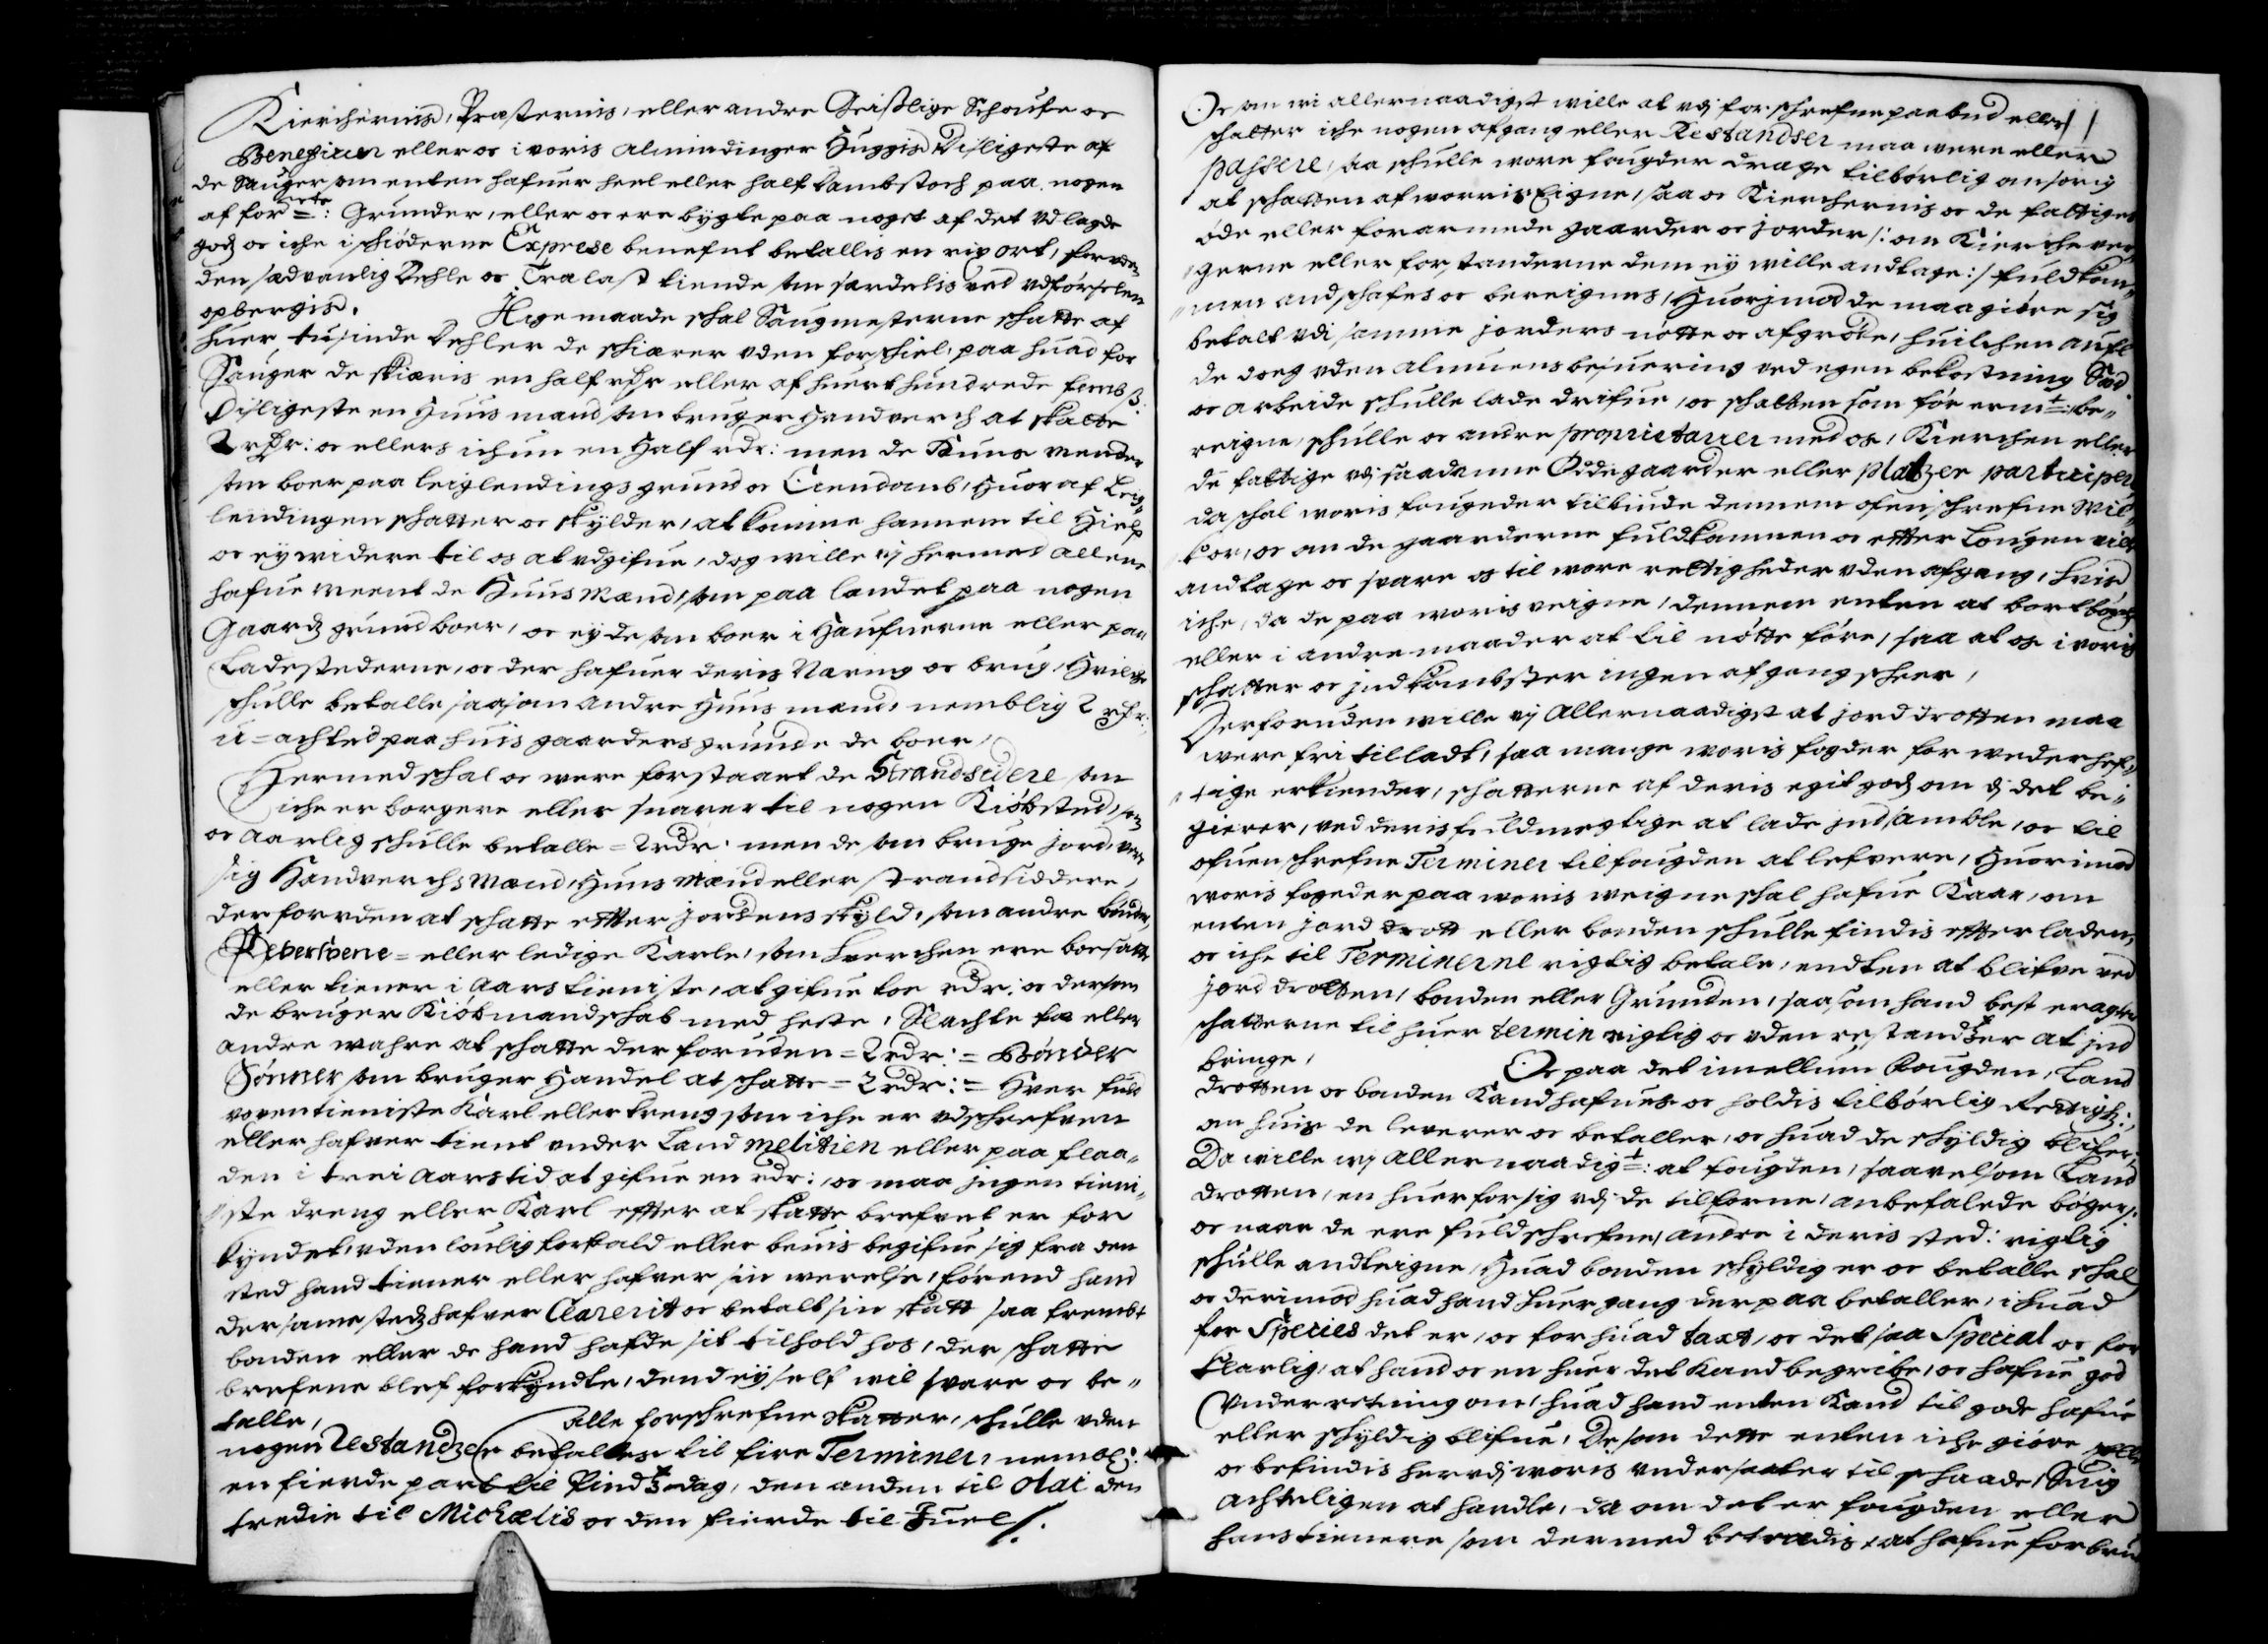 Kierchernis, Præsternis, eller andre Geistlige Schoufe oc
Beneficier eller oc i voris Almindinger Huggis, Disligeste af
de Sauger som enten hafuer heel eller half Dambstoch paa nogen
af forne: Grunder, eller oc ere bygte paa noget af det Vdlagde
godz oc iche i schiøderne Exprese benefnt betallis en rix ort, foruden
den sædvanlig Dehle oc Tralast tiende som særdelis ved vdførselen
opbergis. Lige maade schal Saugmesterne schatte af
huer tusinde Dehler de schiærer uden forschiel, paa huad for
Sauger de skiæris en half rdr eller af huert hundrede femb ß.
Disligeste en Huusmand som bruger Handverch at skatte
2 rdr: oc ellers ichun en Half rdr: men de Huus mender
som boer paa leiglendings grund oc Eiendomb, Huoraf Leig-
lendingen schatter oc skylder, at komme hannem til Hielp
oc ey widere til os at udgifue, dog wille wj hermed allene
hafue meent de Huus Mænd, som paa landet paa nogen
Gaardz grund boer, oc ey de som boer i Haufnerne eller paa
Ladestederne, oc der hafuer deris Næring oc brug, Hvilche
schulle betalle saasom andre Huus mænd, nemblig 2 rdr:
u-achted paa huis gaarders grunde de boer,
Hermed schal oc were forstaaet de Strandsidere som
iche er borgere eller suarer til nogen Kiøbsted, som
oc Aarlig schulle betalle = 2 rdr: men de som bruge jord, være
sig Handverchs Mænd, Huus Mænd eller strandsiddere,
der foruden at schatte effter jordens skyld, som andre bønder,
eller ledige Karle, som huerchen ere boesatte
eller tiener i Aars tieniste, at gifue toe rdr: oc dersom
de bruger Kiøbmandschab med heste, Slachte fæ eller
andre wahre at schatte der foruden = 2 rdr: = Bønder
Sønner som bruger Handel at schatte = 2 rdr: = Hver fuld
voxen tieniste Karl eller dreng som iche er vdschrefven
eller hafver tient under Land Militien eller paa flaa-
den i trei Aars tid at gifue en rdr:, oc maa jngen tieni-
ste dreng eller Karl effter at skatte brefvet er for
kyndet, uden louligforfald eller beuis begifue sig fra den
sted hand tiener eller hafver sin werelse, førend hand
der samestedz hafver Clarerit oc betalt sin skatt saa frembt
bonden eller de hand hafde sit tilhold hos, der schatte
brefene blef forkyndte, dend ey self wil svare oc be-
talle, Alle forschrefne skatter, schulle uden
nogen Restandzer betalles til fire Terminer, nembl:
en fierde part til Pindzdag, den anden til Olai den
tredie til Michælis oc den fierde til Juel /.
Oc som wi allernaadigst wille at udj forschrefne paabud eller
schatter iche nogen afgang eller Restandser maa were eller
passere, saa schulle wore fougder drage tilbørlig omsorig
at schatten af worris Eigne, saa oc Kierchernis oc de fattiges
øde eller forarmede gaarder oc jorder /: om Kircheverr-
gerne eller forstanderne dem ey wille andtage :/ fuldkom-
men andschafes oc bereignes, Huorjmod de maa giøre sig
betalt udi samme jorders nøtte oc afgrøde, huilchen aufl
de doeg uden Almuens besuering ved egen bekostning Sæd
oc arbeide schulle lade drifue, oc schatten som før ermt: be-
reigne, schulle oc andre proprietarier med os, Kierchen eller
de fattige udj saadanne Ødegaarder eller platzer participere
da schal woris fougeder tilbiude dennem ofenschrefne Wil-
kor, oc om de gaarderne fuldkommen oc effter Lougen ville
andtage oc svare os til wore rettigheder uden afgang, hvis
iche, da de paa woris veigne, dennem enten at bortbøgsle
eller i andre maader at til nøtte føre, saa at os i voris
schatter oc jndkombster ingen afgang scheer,
Derforuden wille wj Allernaadigst at jorddrotten maa
were fri tilladt, saa mange woris fogder for wederhef-
tige erkiender, schatterne af deris egit godz om dj det be-
gierer, ved deris fuldmegtige at lade jndsamble, oc til
ofuenschrefne Terminer til fougden at lefvere, Huorimod
woris fogeder paa woris weigne schal hafue Kaar, om
enten jorddrott eller bonden schulle findis effterladen,
oc iche til Terminerne rigtig betale, endten at blifve ved
jorddrotten, bonden eller Grunden, saasom hand best eragter
schatterne til huer termin rigtig oc uden restandzer at jnd
bringe, Oc paa det imellum Fougden, Land
drotten oc bonden Kand hafues oc holdis tilbørlig Rettigh:,
om huis de leverer oc betaller, oc huad de schyldig blifer,
Da wille wj Allernaadigt: at fougden, saavelsom Land
drotten, en huer forsig udj de tilforne anbefalede bøger,
oc naar de ere fuldschrefne, andre i deris sted: rigtig
schulle andteigne, Huad bonden schyldig er oc betalle schal
oc derimod huad hand huer gang derpaa betaller, i huad
for Species det er, oc for huad taxt, oc det saa Special oc for
klarlig, at hand oc en huer det kand begribe, oc hafue god
Underretning om, huad hand enten Kand til gode hafue
eller schyldig blifue, De som dette enten iche giøre
oc befindis herudj woris undersaatter til schaade, Suig
achteligen at handle, da om det er fougden eller
hans tienere som dermed betrædis, at hafue forbru